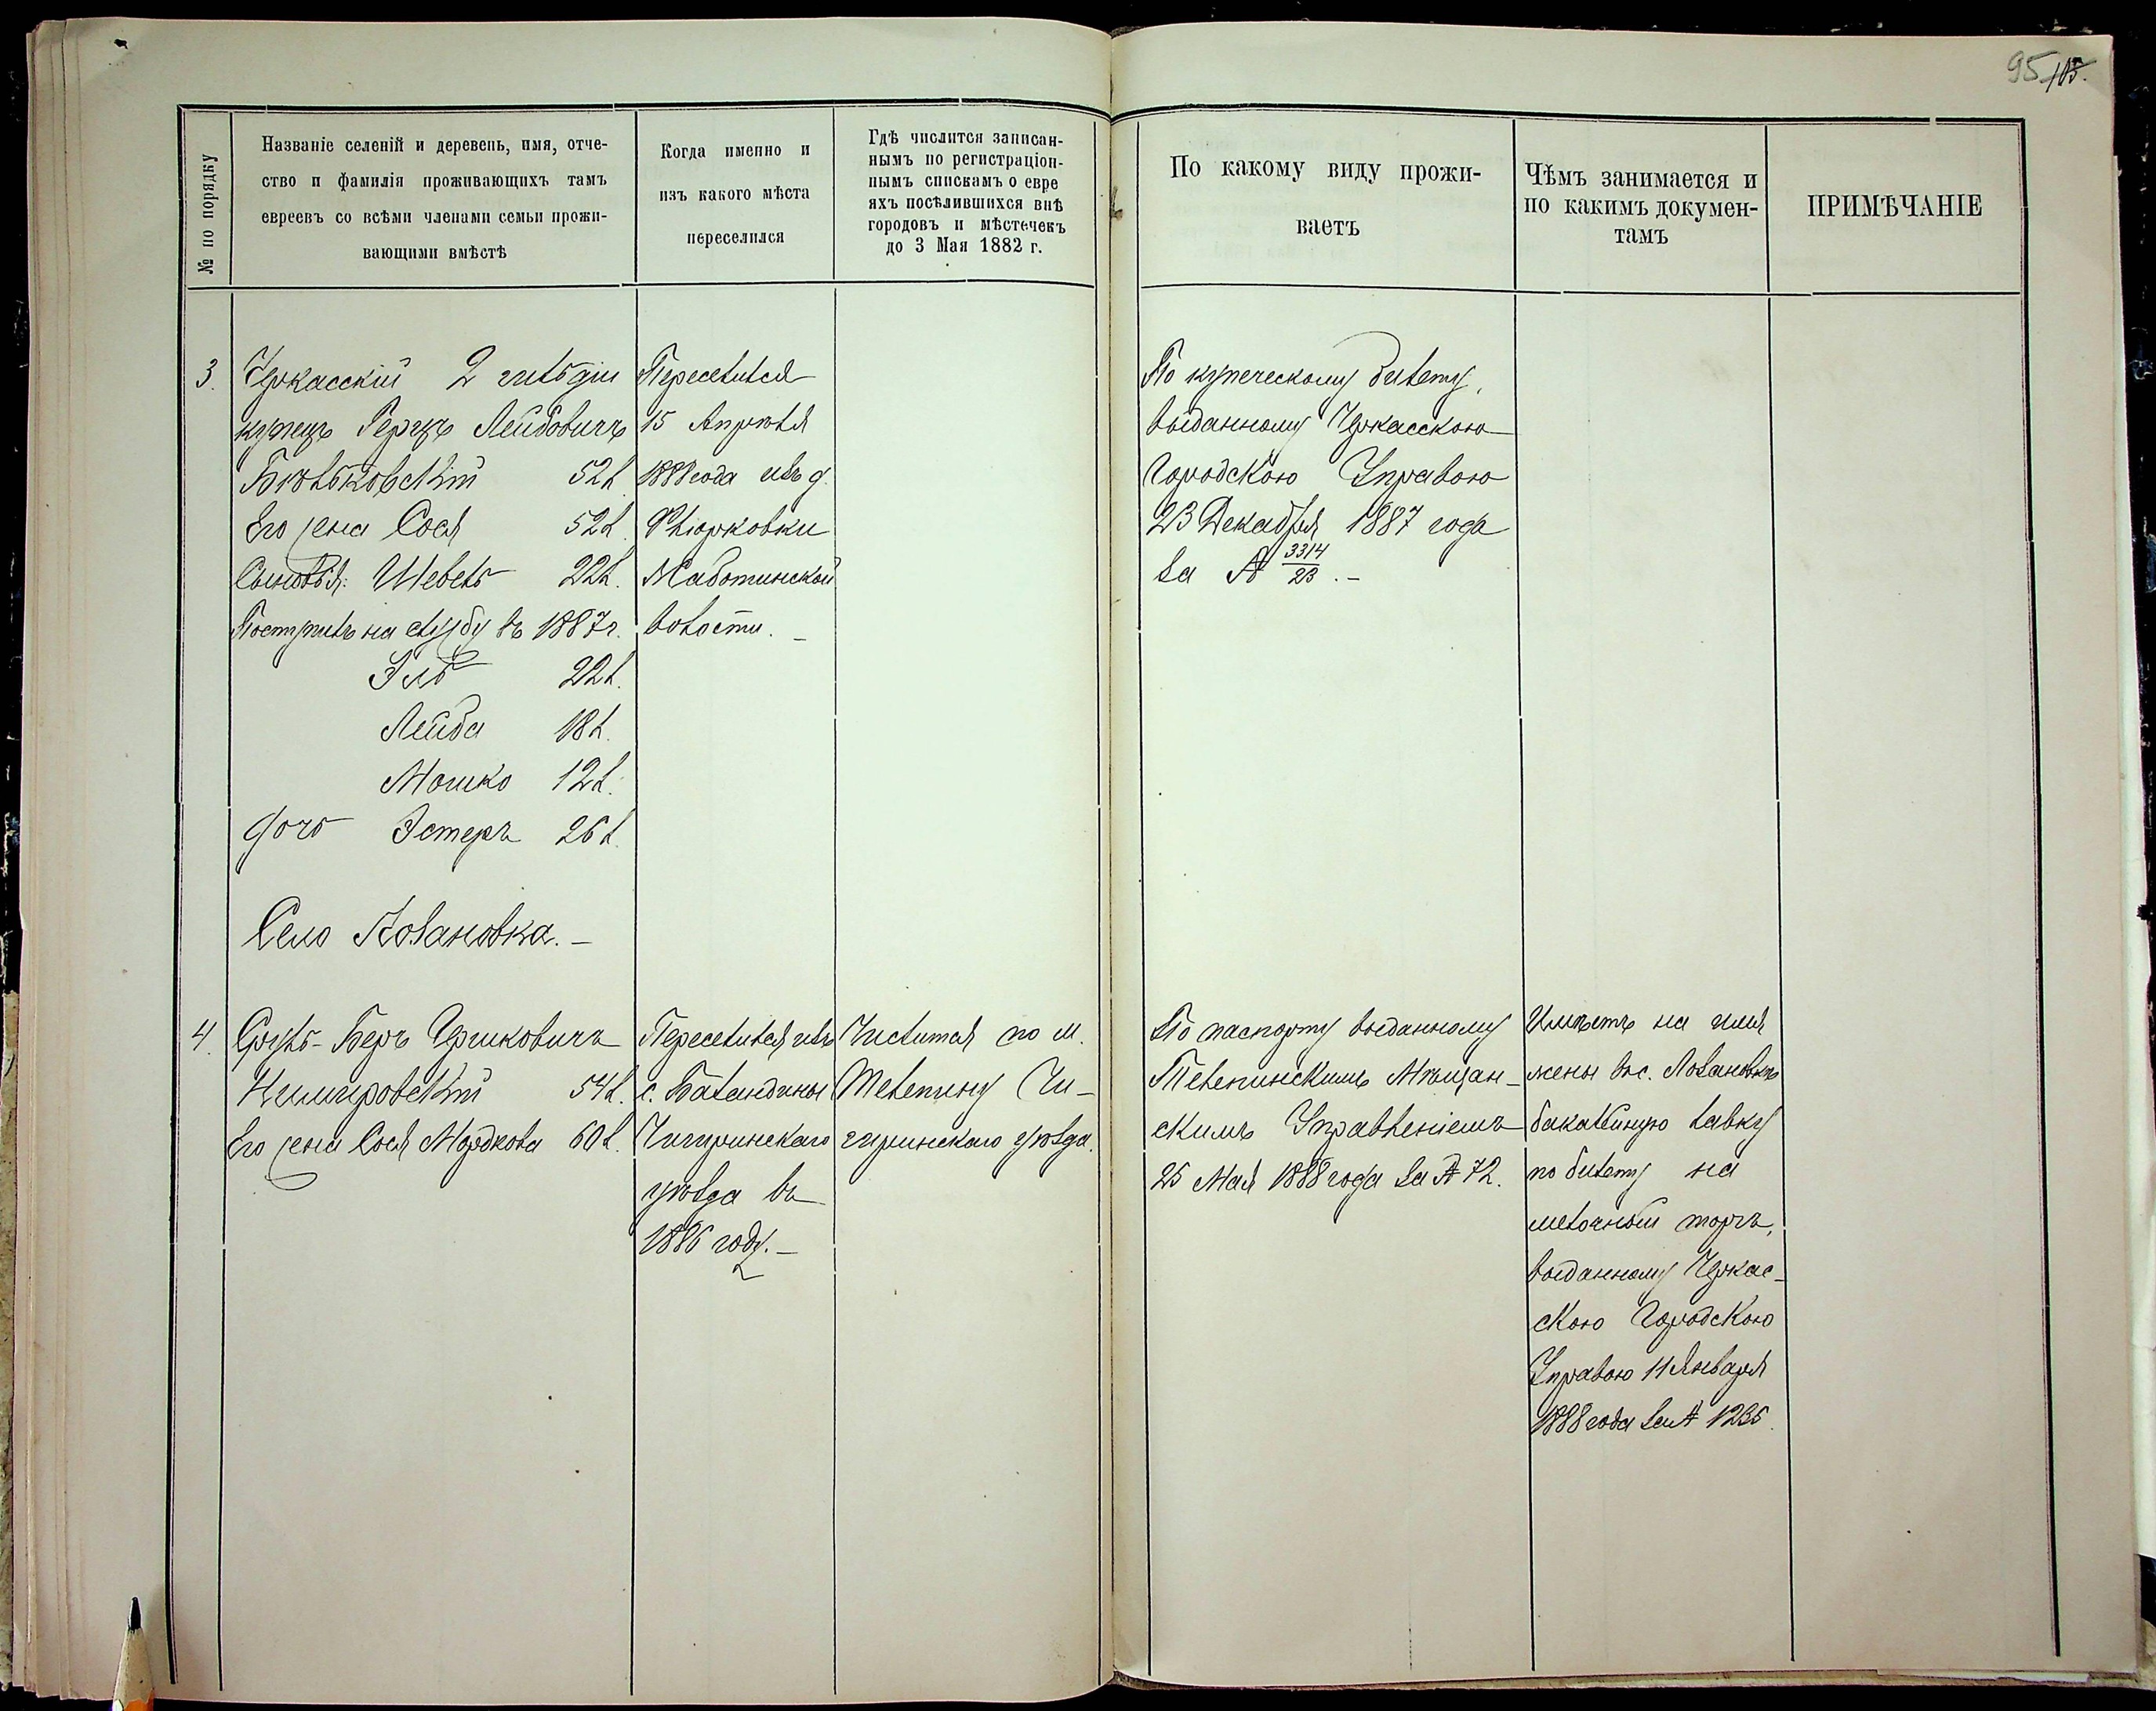 95 105.
№ по порядку
Названіе селеній и деревень, имя, отче-
ство и фамилія проживающихъ тамъ
евреевъ со всѣми членами семьи прожи-
вающими вмѣстѣ
Когда именно и
изъ какого мѣста
переселился
Гдѣ числится записан-
нымъ по регистраціон-
нымъ спискамъ о евре
яхъ посѣлившихся внѣ
городовъ и мѣстечекъ
до 3 Мая 1882 г.
По какому виду прожи-
ваетъ
Чѣмъ занимается и
по какимъ докумен-
тамъ
ПРИМѢЧАНІЕ
3.
Черкасскій 2 гильдіи
купецъ Герцъ Лейбовичъ
Бѣльковскій 52 л.
Его жена Сося 52 л.
Сыновья: Шевель 22 л.
Поступилъ на службу въ 1887 г.
Эль 22 л.
Лейба 18 л.
Мошко 12 л.
дочь Эстеръ 26 л.
Переселился
15 Апрѣля
1888 года изъ д.
Флюрковки
Жаботинской
волости. –
По купеческому билету,
выданному Черкасскою
Городскою Управою
23 Декабря 1887 года
за № 3314/23. –
Село Лозановка. –
4.
Сруль-Беръ Гершковичъ
Немировскій 54 л.
Его жена Сося Мордкова 60 л.
Переселился изъ
с. Баландины
Чигиринскаго
уѣзда въ
1886 году. –
Числится по м.
Телепину Чи-
гиринскаго уѣзда.
По паспорту выданному
Телепинскимъ Мѣщан-
скимъ Управленіемъ
25 Мая 1888 года за № 72.
Имѣетъ на имя
жены въ с. Лозановкѣ
бакалейную лавку
по билету на
мелочный торгъ,
выданному Черкас-
скою Городскою
Управою 11 Января
1888 года за № 1235.